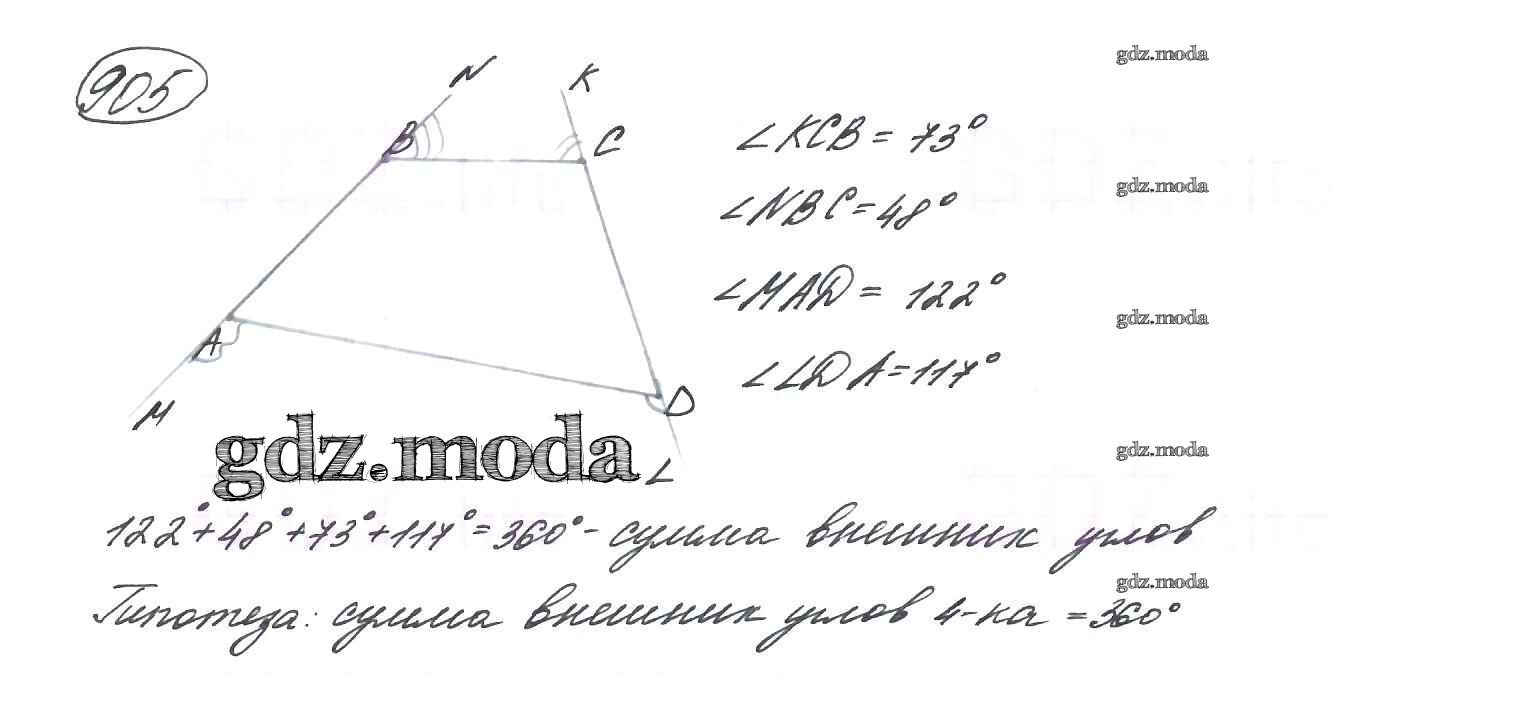 905
N
K
B
C
A
M
D
L
∠KCB = 73°
∠NBC = 48°
∠MAD = 122°
∠LDA = 117°
gdz.moda
gdz.moda
gdz.moda
gdz.moda
gdz.moda
gdz.moda
122° + 48° + 73° + 117° = 360° - сумма внешник углов
Гипотеза: сумма внешник углов 4-ка = 360°